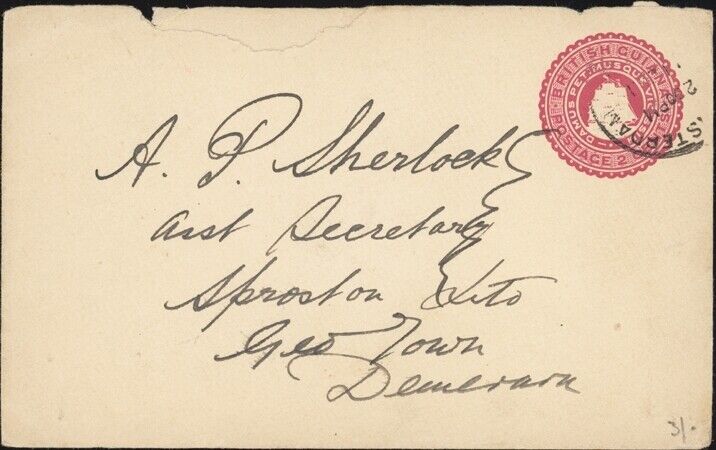 BRITISH GUIANA
POSTAGE 2
DAMUS PETIMUSQUE VICISSIM
2
A. P. Sherlock
asst Secretary
Sproston Ltd
Geo Town
Demerara
3/-